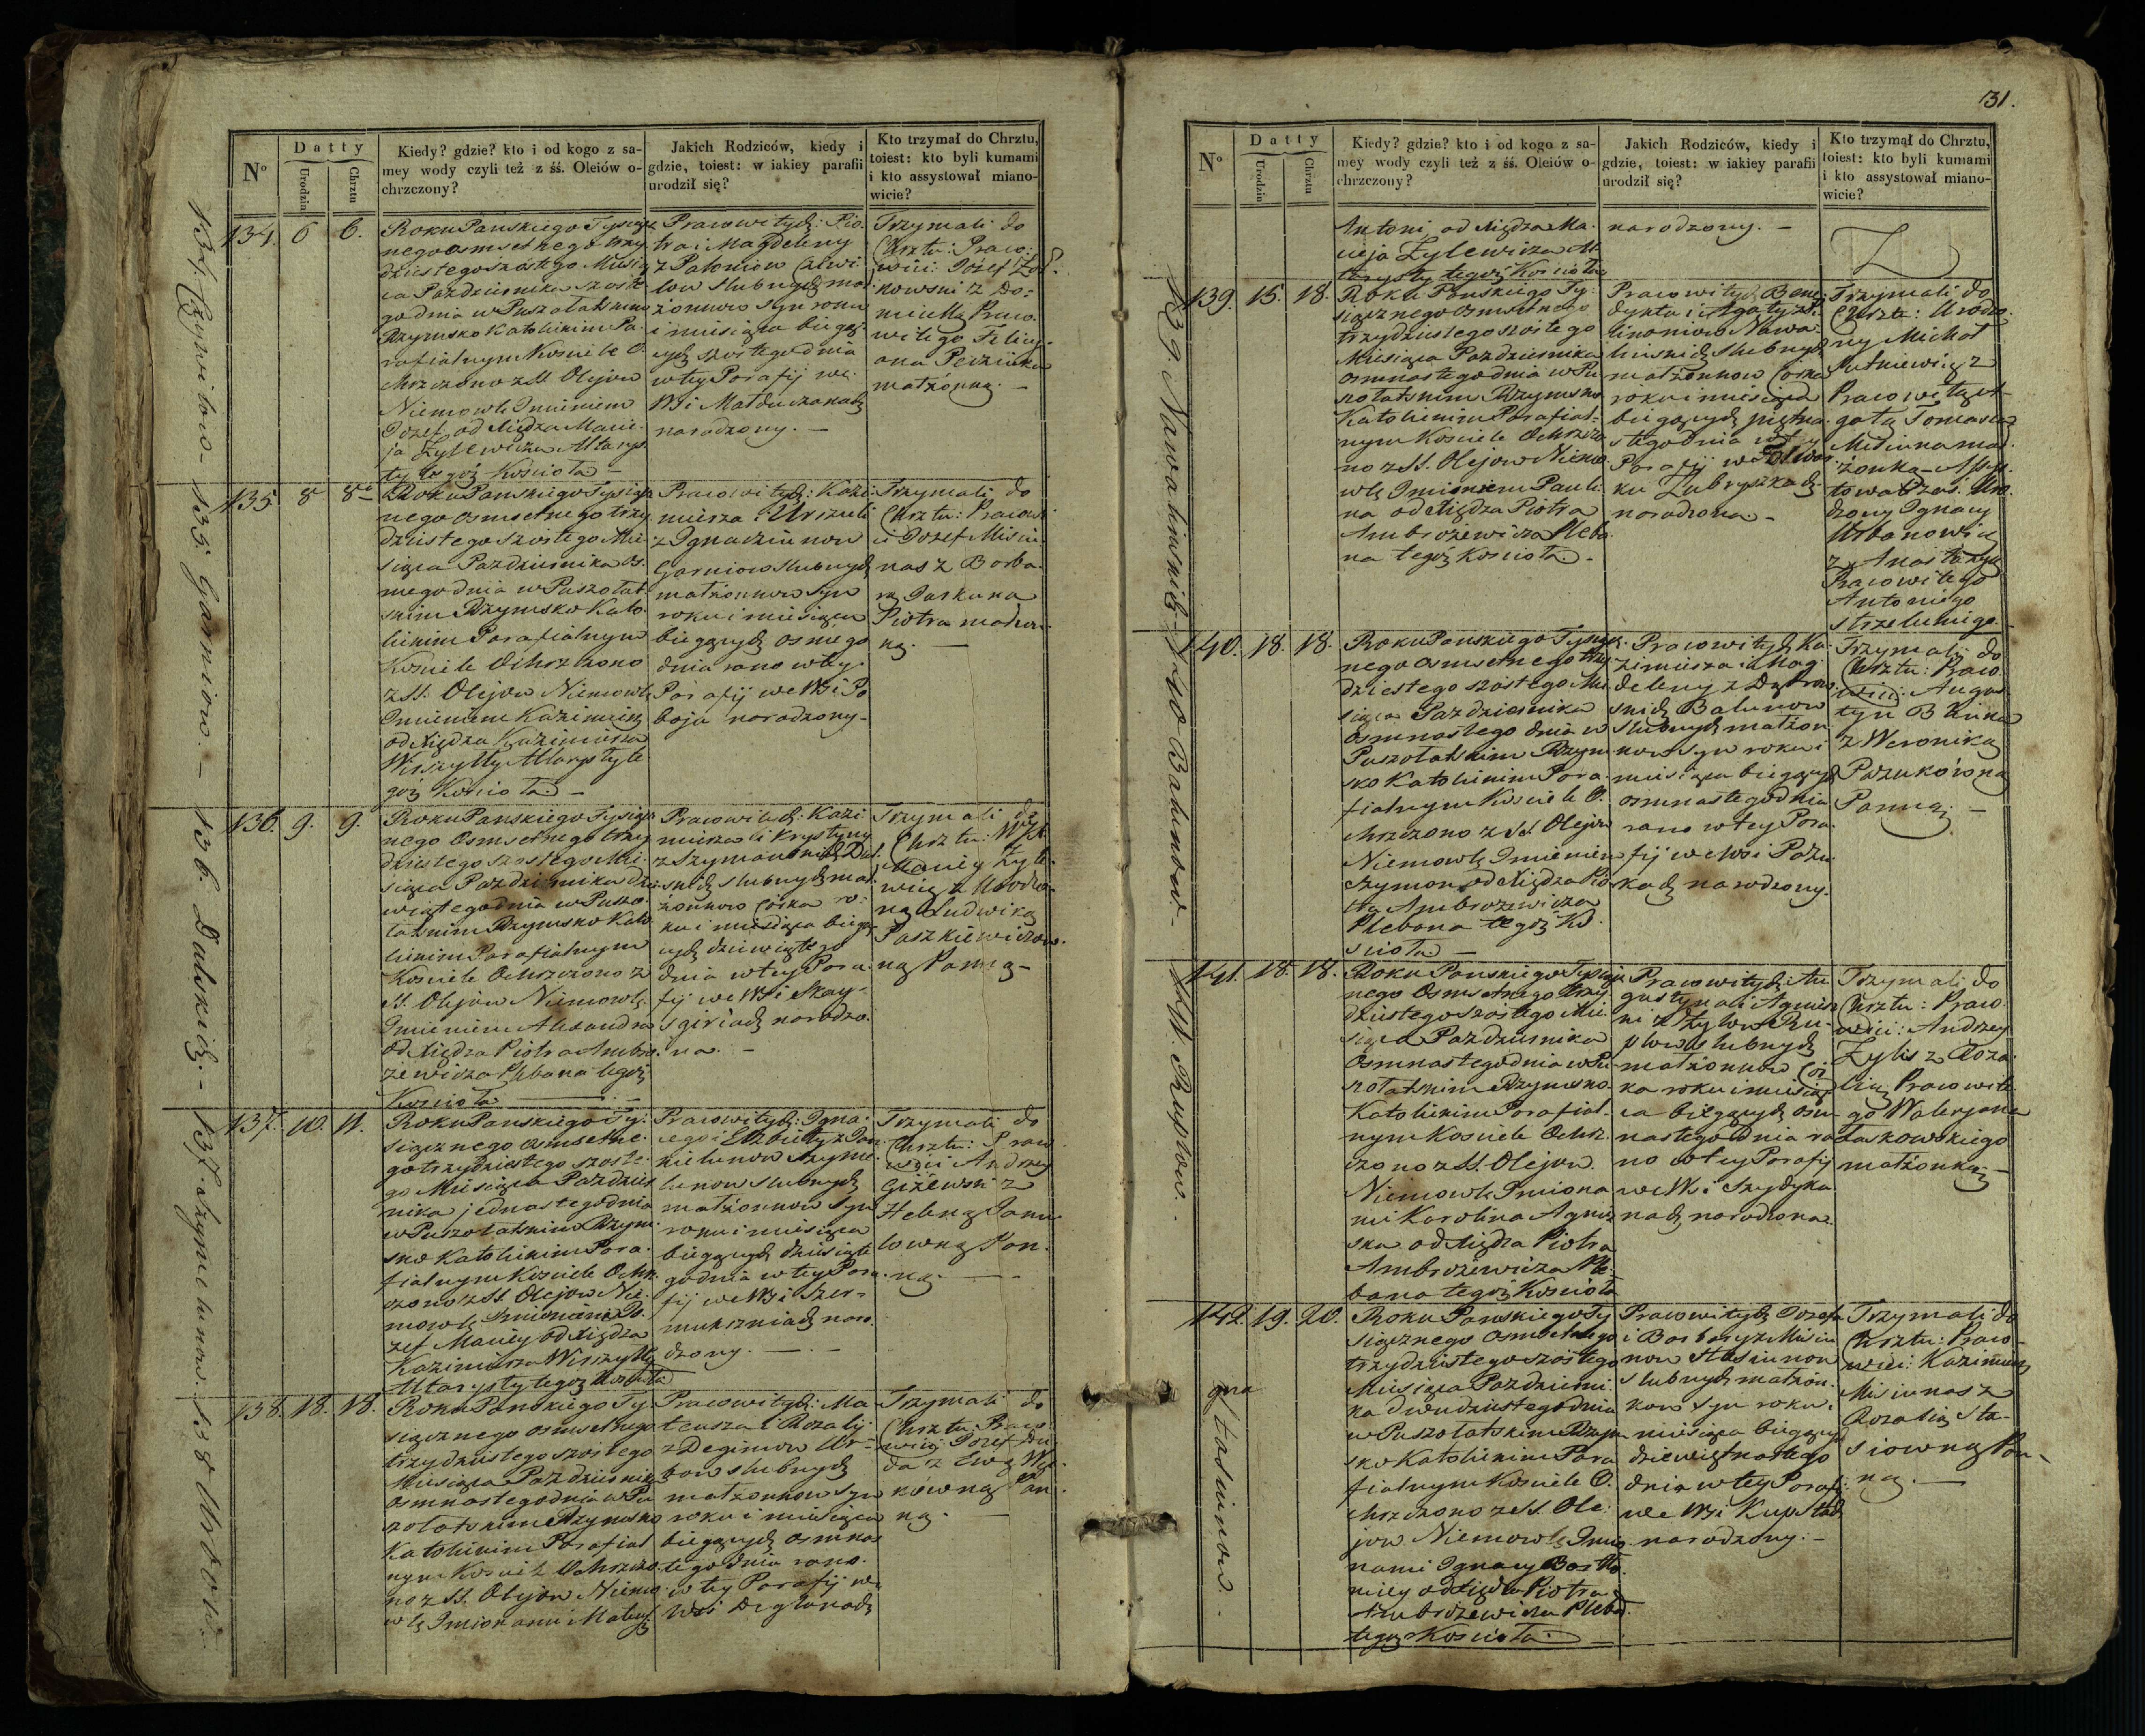 31.
Nº
Datty
Urodzin
Chrztu
Kiedy? gdzie? kto i od kogo z sa-
mey wody czyli też z śś. Oleiów o-
chrzczony?
Jakich Rodziców, kiedy i
gdzie, toiest: w iakiey parafii
urodził się?
Kto trzymał do Chrztu,
toiest: kto byli kumami
i kto assystował miano-
wicie?
134. 6 6.
Roku Pańskiego Tysiącz
nego osmsetnego trzy
dziestego szóstego Miesią
ca Pazdziernika szoste
go dnia w Puszołatskim
Rzymsko Katolickim Pa-
rafialnym Kosciele O-
chrzczono z SS. Olejow
Niemowle Imieniem
Jozef od Xiędza Macie-
ja Zylewicza Altarys
ty tegoż Kościoła –
Pracowitych: Pio
tra i Magdeleny
ślubnych mał
żonkow syn roku
i miesiąca bieżą
cych szostego dnia
w tey Parafij we
Wsi
narodzony. –
Trzymali do
Chrztu: Praco-
wici: Józef
z Do-
Praco-
witego Felicy-
ana
małżonką. –
135. 8 8
Roku Pańskiego Tysiącz
nego osmsetnego trzy
dziestego szostego Mie
siąca Pazdziernika Os-
mego dnia w Puszołat
skim Rzymsko Kato-
lickim Parafialnym
Kosciele Ochrzczono
z SS. Olejow Niemowle
Imieniem Kazimierz
od Xiędza Kazimierza
Wirszyłły Altarysty te
goż Kościoła –
Pracowitych: Kazi
mierza i Urszuli
z Ignaciunow
Garniow slubnych
małżonkow syn
roku i miesiąca
bieżących osmego
dnia rano w tey
Parafij we Wsi Po
boja narodzony. –
Trzymali do
Chrztu: Pracowi
ci Jozef Misiu
nas z Barba-
rą
Piotra
136. 9. 9.
Roku Pańskiego Tysiącz
nego Osmsetnego trzy
dziestego szostego Mie
siąca Pazdziernika dzie
wiątego dnia w Puszo-
łatskim Rzymsko Kato
lickim Parafialnym
Kosciele Ochrzczono z
SS. Olejow Niemowle
Imieniem Alexandra
od Xiędza Piotra Ambro
żewicza Plebana tegoż
Kościoła –
Pracowitych: Kazi-
mierza i Krystyny
z Szymanskich Dul
skich slubnych mał
żonkow Corka ro-
ku i miesiąca bieżą
cych dziewiątego
dnia w tey Para-
fij we Wsi Skay-
sgiriach narodzo-
na. –
Trzymali do
Chrztu:
Maciey Zyle
wicz z Urodzo-
ną Ludwiką
Paszkiewiczow-
ną Panną –
137. 10. 11.
Roku Pańskiego Ty-
siącznego osmsetne-
go trzydziestego szoste-
go Miesiąca Pazdzier
nika jednastego dnia
w Puszołatskim Rzym
sko Katolickim Para-
fialnym Kosciele Ochrz
czono z SS Olejow Nie-
mowle Imionami Jo-
zef Maciey od Xiędza
Kazimierza Wirszyłły
Altarysty tegoż Kościoła
Pracowitych: Igna-
cego i Elżbiety z Jan
kielunow Szyme-
lunow slubnych
małżonkow syn
roku i miesiąca
bieżących dziesiąte
go dnia w tey Para-
fij we Wsi Szer-
mukszniach naro-
dzony. –
Trzymali do
Chrztu: Praco
wici Andrzey
Giżewski z
Heleną Janu
lowną Pan-
ną. –
138. 18. 18.
Roku Pańskiego Ty
siącznego osmsetnego
trzydziestego szostego
Miesiąca Pazdziernika
osmnastego dnia w Pu
szołatskim Rzymsko
Katolickim Parafial
nym Kosciele Ochrzczo
no z SS. Olejow Niemo
wle Imionami Mateusz
Pracowitych: Ma
teusza i Rozalij
z Deginow Ur-
bow slubnych
małżonkow syn
roku i miesiąca
bieżących osmnas
tego dnia rano
w tey Parafij we
Wsi Degłanach
Trzymali do
Chrztu: Praco
wici Jozef
z Ewą
kówną Pan
ną. –
134. 135. Garniow. – 136. Dulskich. – 137. Szymelunow. 138 Urbow.
Nº
Datty
Urodzin
Chrztu
Kiedy? gdzie? kto i od kogo z sa-
mey wody czyli też z śś. Oleiów o-
chrzczony?
Jakich Rodziców, kiedy i
gdzie, toiest: w iakiey parafii
urodził się?
Kto trzymał do Chrztu,
toiest: kto byli kumami
i kto assystował miano-
wicie?
Antoni od Xiędza Ma-
cieja Zylewicza Al
tarysty tegoż Koscioła
narodzony. –
139. 15. 18.
Roku Pańskiego Ty-
siącznego osmsetnego
trzydziestego szostego
Miesiąca Pazdziernika
osmnastego dnia w Pu
szołatskim Rzymsko
Katolickim Parafial-
nym Kosciele Ochrzczo
no z SS. Olejow Niemo
wle Imieniem Pauli-
na od Xiędza Piotra
Ambrożewicza Pleba
na tegoż Kościoła –
Pracowitych Bene
dykta i Agaty z
Nawa-
kinskich slubnych
małżonkow Corka
roku i miesiąca
bieżących piętna
stego dnia w tey
Parafij w Folwar
ku Zubryszkach
narodzona –
Trzymali do
Chrztu: Urodzo
ny Michał
z
Pracowitą A-
gatą Tomasza
Misiuna mał
żonką – Assys
tował zaś: Uro
dzony Ignacy
Urbanowicz
z Anastazyą
Pracowitego
Antoniego
140. 18. 18.
Roku Pańskiego Tysiącz
nego osmsetnego trzy
dziestego szostego Mie
siąca Pazdziernika
osmnastego dnia w
Puszołatskim Rzym
sko Katolickim Para-
fialnym Kosciele O-
chrzczono z SS Olejow
Niemowle Imieniem
Szymon od Xiędza Pio
tra Ambrożewicza
Plebana tegoż Ko
scioła –
Pracowitych Ka-
zimierza i Mag
deleny z Dąbrow
skich Balunow
slubnych małżon
kow syn roku i
miesiąca bieżących
osmnastego dnia
rano w tey Para-
fij we Wsi Pożu
kach narodzony.
Trzymali do
Chrztu: Praco
wici: Augus
tyn
z Weroniką
Pożukówną
Panną. –
141. 18. 18.
Roku Pańskiego Tysiącz
nego Osmsetnego trzy
dziestego szostego Mie
siąca Pazdziernika
Osmnastego dnia w Pu
szołatskim Rzymsko
Katolickim Parafial-
nym Kosciele Ochrz-
czono z SS. Olejow
Niemowle Imiona
mi Karolina Agniesz
ska od Xiędza Piotra
Ambrożewicza Ple
bana tegoż Kościoła
Pracowitych Au
gustyna i Agniesz
ki z Zylow Ru-
plow slubnych
małżonkow Cor
ka roku i miesią
ca bieżących osm
nastego dnia ra
no w tey Parafij
we Wsi Szydyka
nach narodzona.
Trzymali do
Chrztu: Praco
wici: Andrzey
Zylis z Roza
lią Pracowite
go Waleryana
Laskowskiego
małżonką. –
142. 19. 20.
Roku Pańskiego Ty
siącznego Osmsetnego
trzydziestego szostego
Miesiąca Pazdzierni-
ka dwudziestego dnia
w Puszołatskim Rzym
sko Katolickim Para
fialnym Kosciele O-
chrzczono z SS. Ole-
jow Niemowle Imio
nami Ignacy Bartło-
miey od Xiędza Piotra
Ambrożewicza Pleba
tegoż Kościoła –
Pracowitych Jozefa
i Barbary z Misiu
now Stasiunow
slubnych małżon-
kow syn roku i
miesiąca bieżących
dziewiętnastego
dnia w tey Parafij
we Wsi Kupstach
narodzony. –
Trzymali do
Chrztu: Praco-
wici: Kazimierz
Misiunas z
Rozalią Sta-
siowną Pan-
ną. –
139. Nawakinskich – 140 Balunow – 141. Ruplow. –
Stasiunow. –